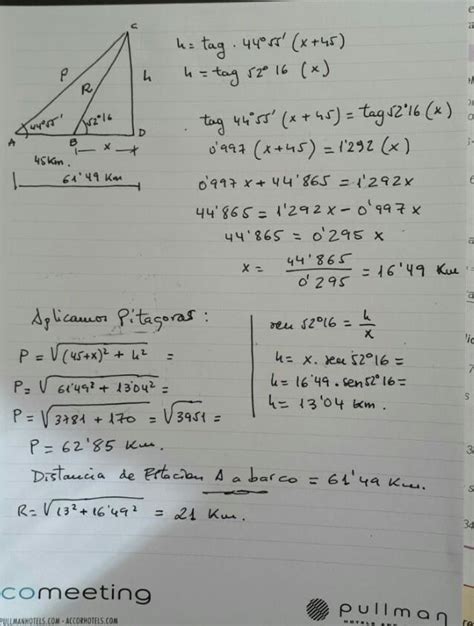 C
P
R
h
44º55'
52º16
A
B
x
D
45Km.
61'49 Km
h = tag . 44º55' (x+45)
h = tag 52º16 (x)
tag 44º55' (x+45) = tag 52º16 (x)
0'997 (x+45) = 1'292 (x)
0'997x + 44'865 = 1'292x
44'865 = 1'292x - 0'997x
44'865 = 0'295 x
x = 44'865 / 0'295 = 16'49 Km
Aplicamos Pitagoras :
P = √(45+x)² + h² =
P = √61'49² + 13'04² =
P = √3781 + 170 = √3951 =
P = 62'85 Km.
sen 52º16 = h/x
h = x . sen 52º16 =
h = 16'49 . sen 52º16 =
h = 13'04 km.
Distancia de Estacion A a barco = 61'49 Km.
R = √13² + 16'49² = 21 Km.
comeeting
PULLMANHOTELS.COM - ACCORHOTELS.COM
pullman